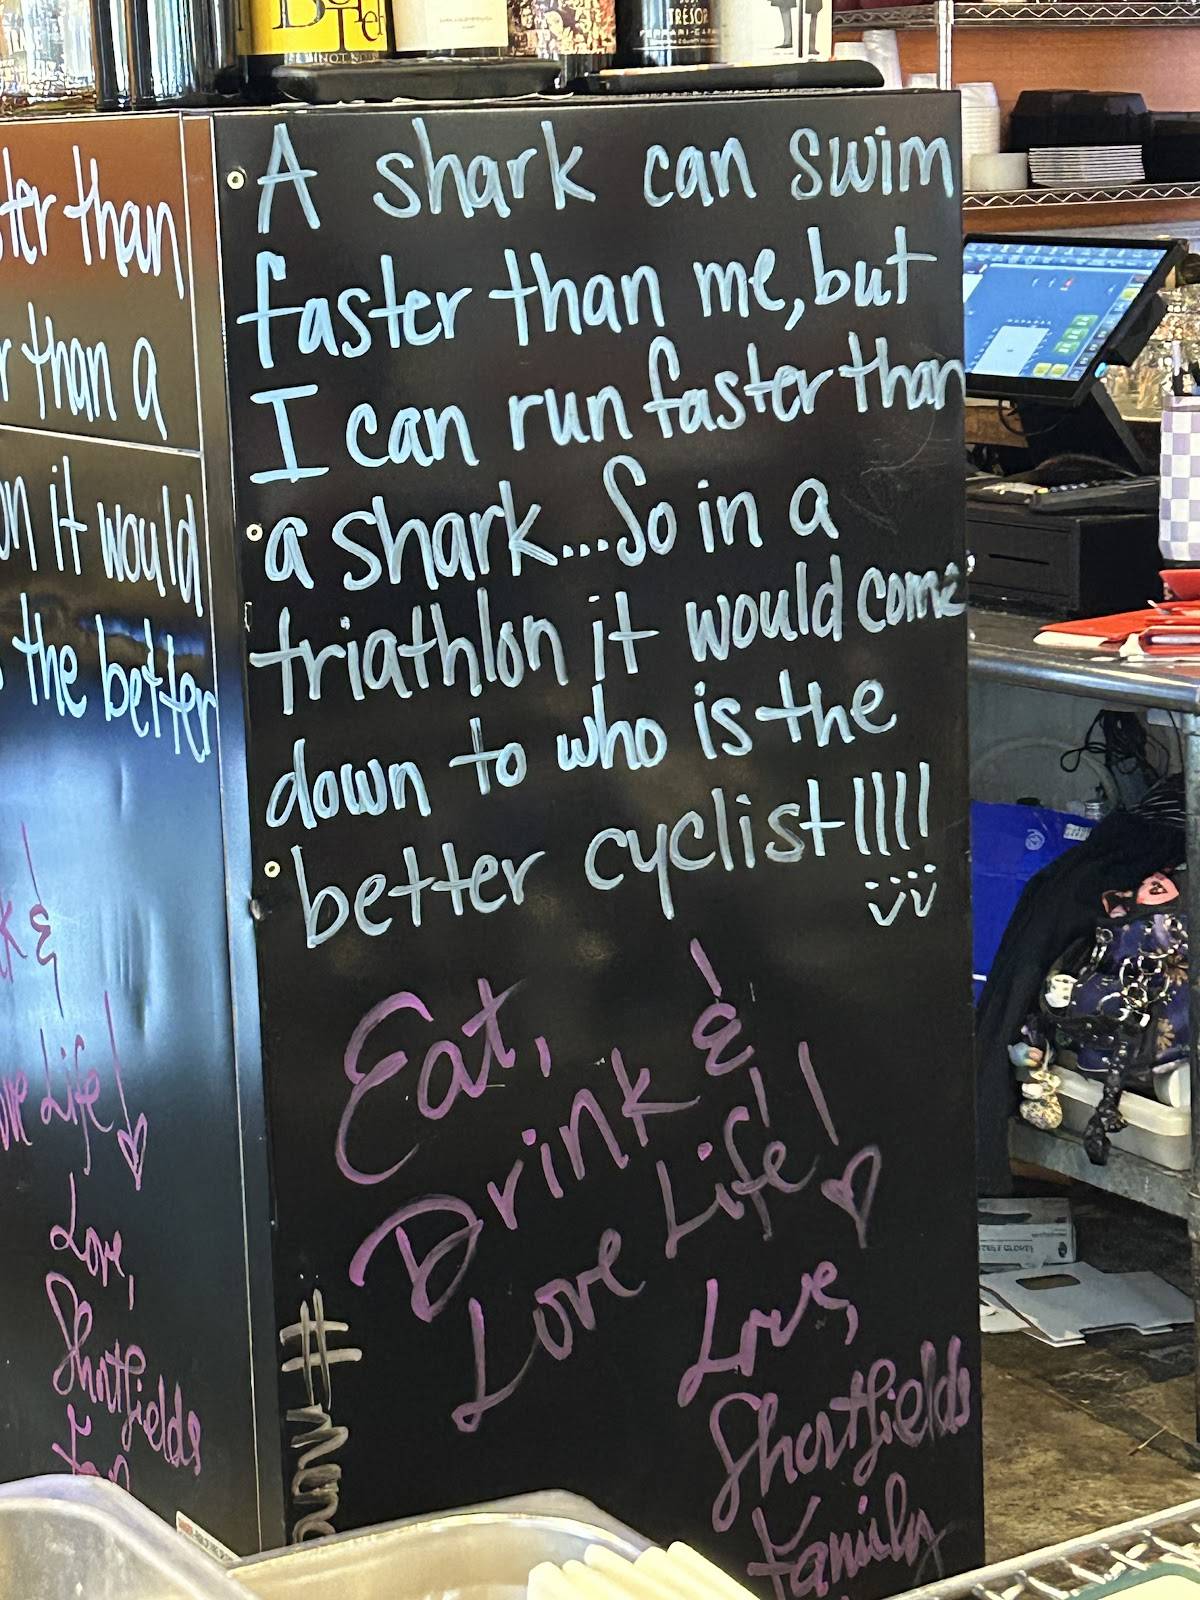 TRESOR
FERRARI-CARANO
PINOT NOIR
A shark can swim
faster than me, but
I can run faster than
a shark...So in a
triathlon it would come
down to who is the
better cyclist!!!!
Eat,
Drink &
Love Life!
Love,
Shortfields
Family
#
than
than a
it would
the better
&
Life!
Love,
Shortfields